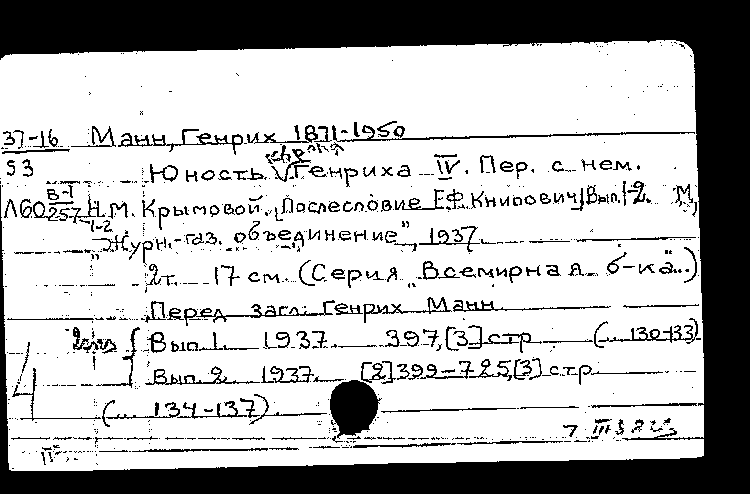 37-16 Манн, Генрих 1871-1950
53 Юность короля Генриха IV. Пер. с нем.
Л60 В-I/257 1-2 Н.М. Крымовой. Послесловие Е.Ф. Книпович. Вып. 1-2. М,
"Журн.-газ. объединение", 1937.
2т. 17 см. (Серия "Всемирная б-ка...)
Перед загл: Генрих Манн
Вып 1. 1937. 397,[3] стр (... 130-133)
4 Вып. 2. 1937. [2] 399-725,[3] стр.
(... 134-137).